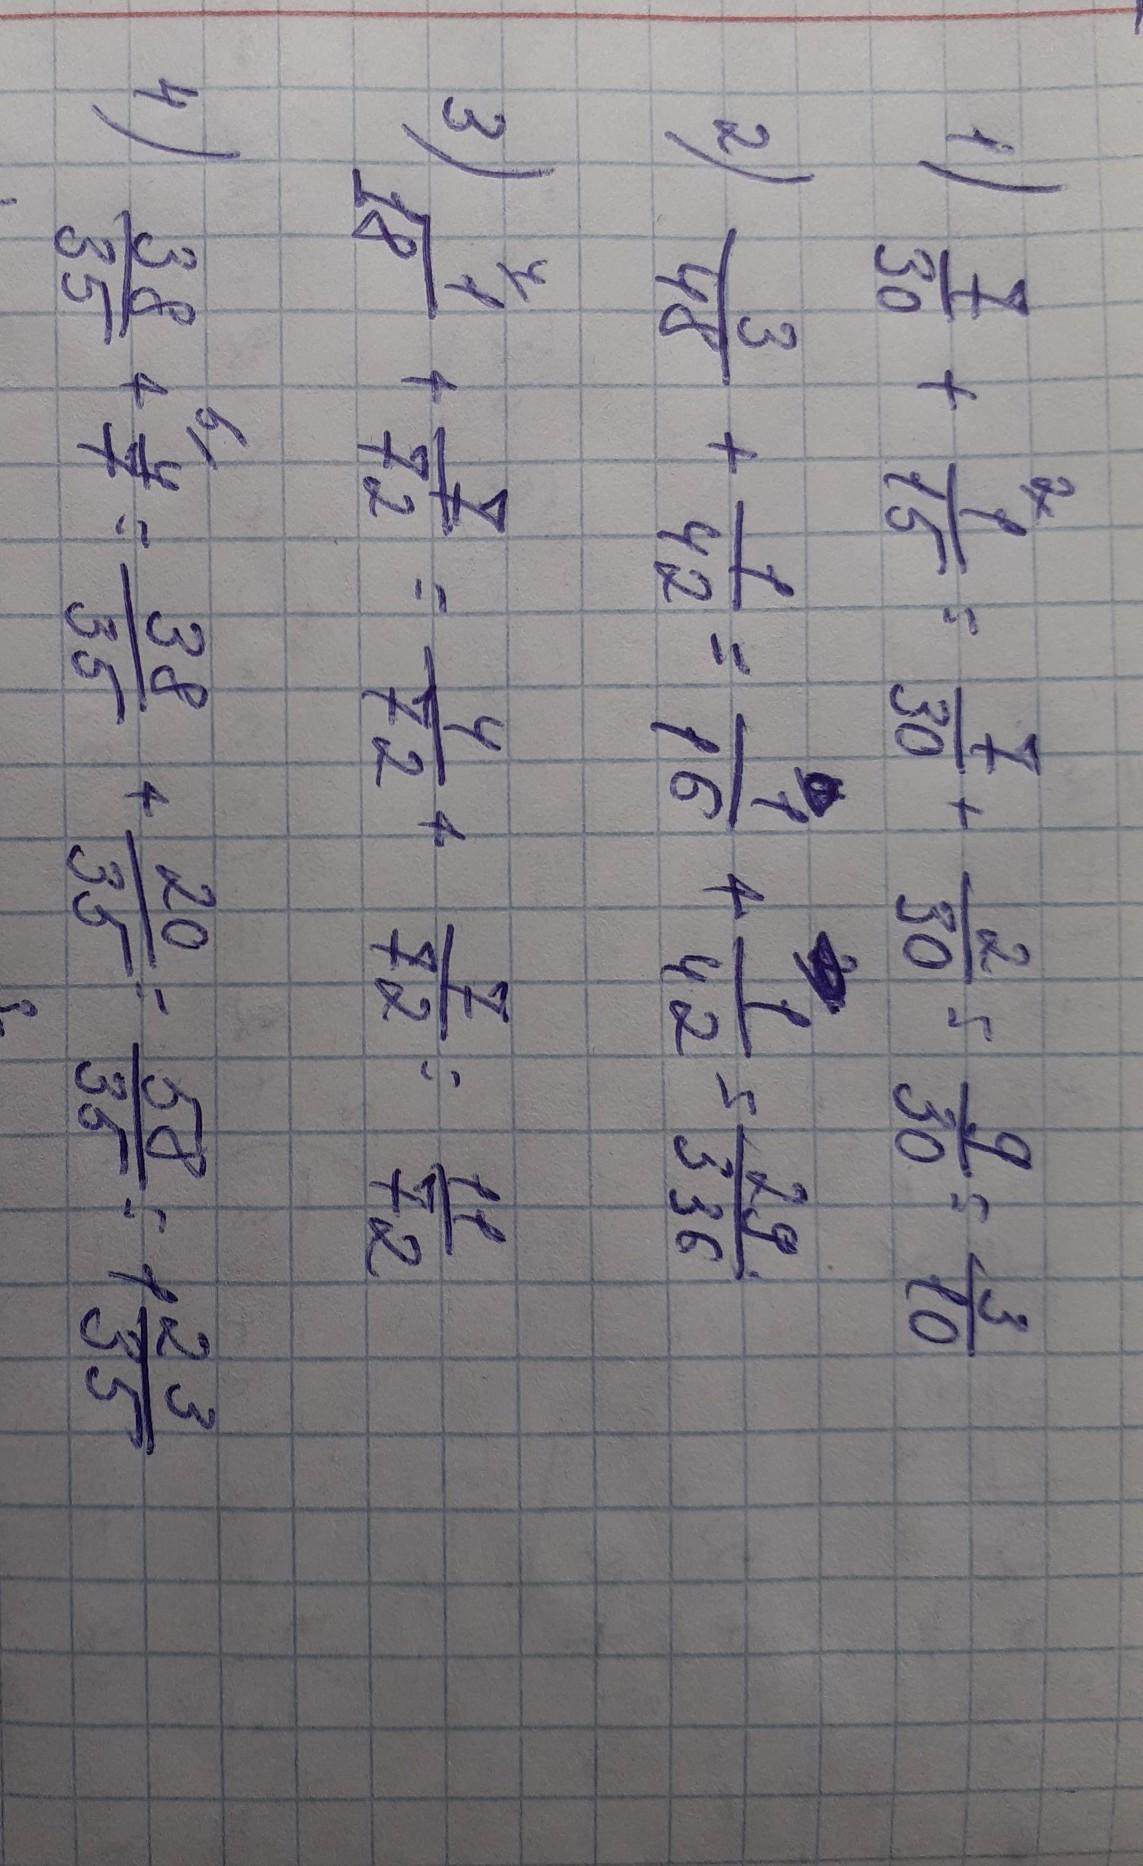 1) 7/30 + 1/15 = 7/30 + 2/30 = 9/30 = 3/10
2) 3/48 + 1/42 = 1/16 + 1/42 = 29/336
3) 1/18 + 7/72 = 4/72 + 7/72 = 11/72
4) 38/35 + 4/7 = 38/35 + 20/35 = 58/35 = 1 23/35